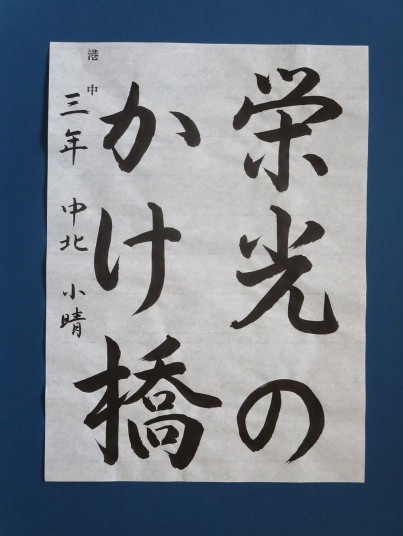 栄光の
かけ橋
港中
三年 中北 小晴